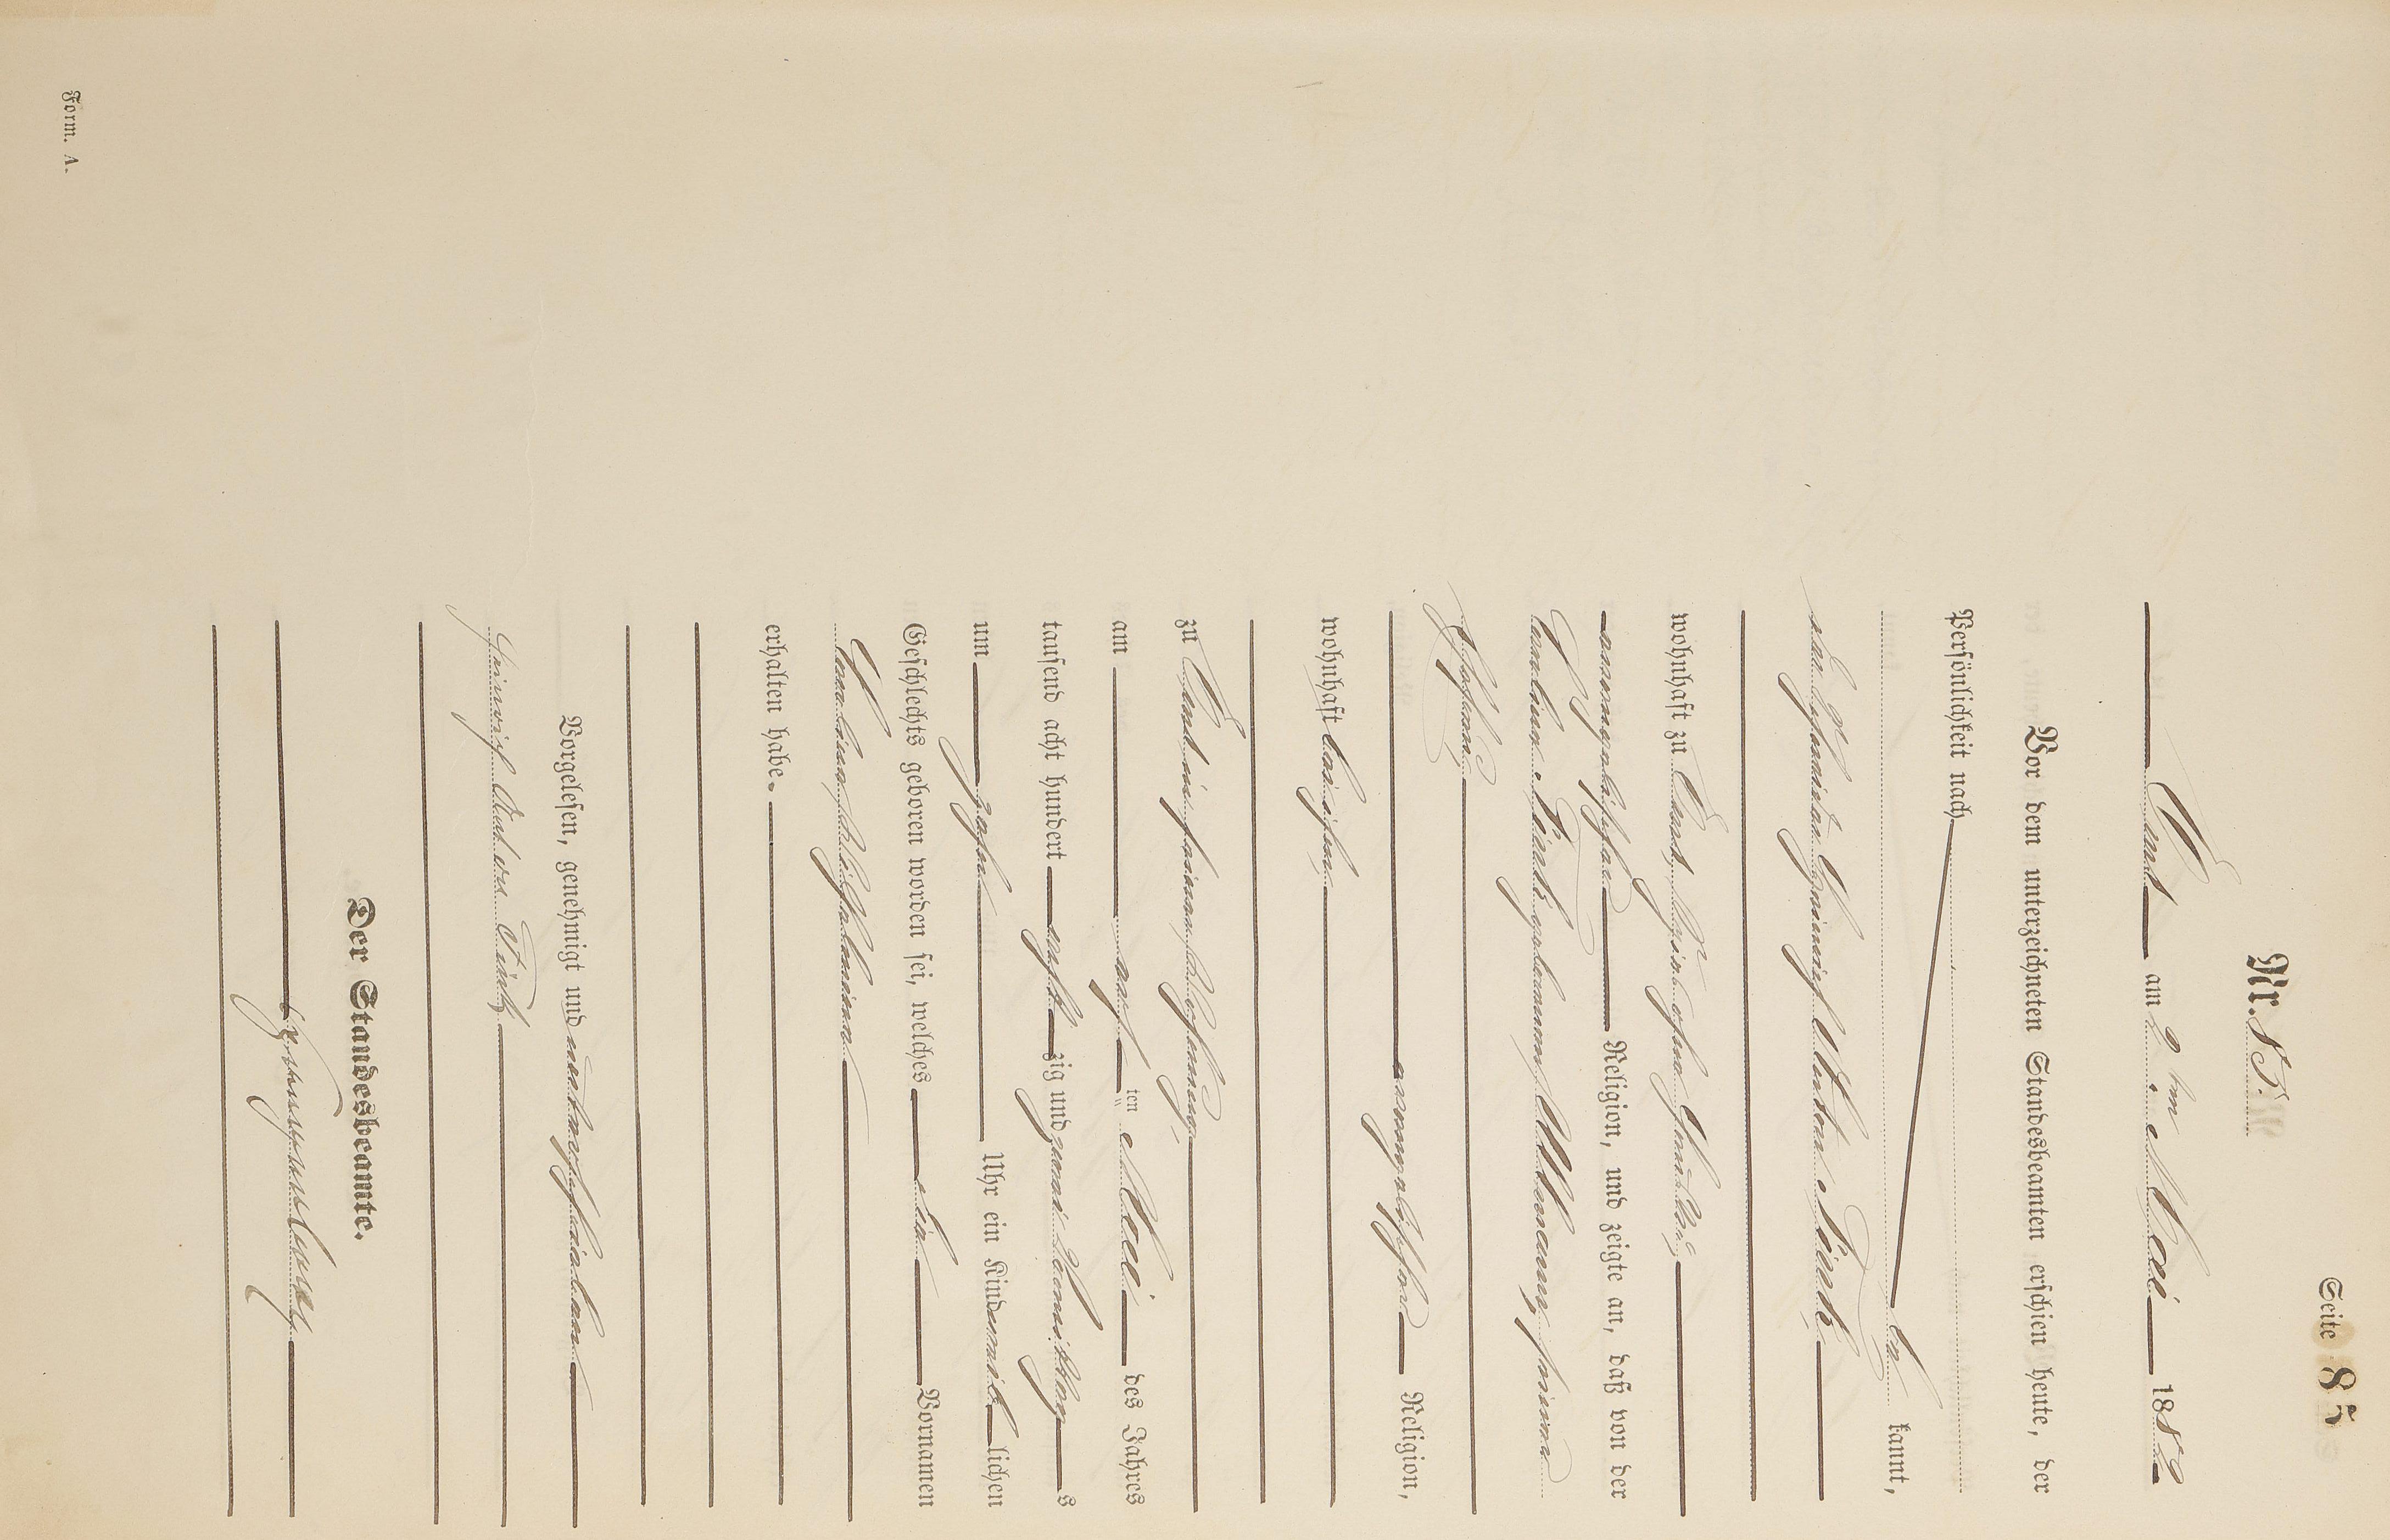 Seite 85
Nr. 85.
Amt am 2ten Mai 1882
Vor dem unterzeichneten Standesbeamten erschien heute, der
Persönlichkeit nach
be kannt,
der Schmied Heinrich Anton Fink
wohnhaft zu Amt,
evangelischer Religion, und zeigte an, daß von der
Pauline Fink geborenen Ullmann, seiner
Ehefrau,
evangelischer Religion,
wohnhaft bei ihm,
zu Amt in seiner Wohnung,
am ersten Mai des Jahres
tausend acht hundert achtzig und zwei Vormittags
um zehn Uhr ein Kind weiblichen
Geschlechts geboren worden sei, welches die Vornamen
Wilhelmine
erhalten habe.
Vorgelesen, genehmigt und unterschrieben
Heinrich Anton Fink
Der Standesbeamte.
Form. A.